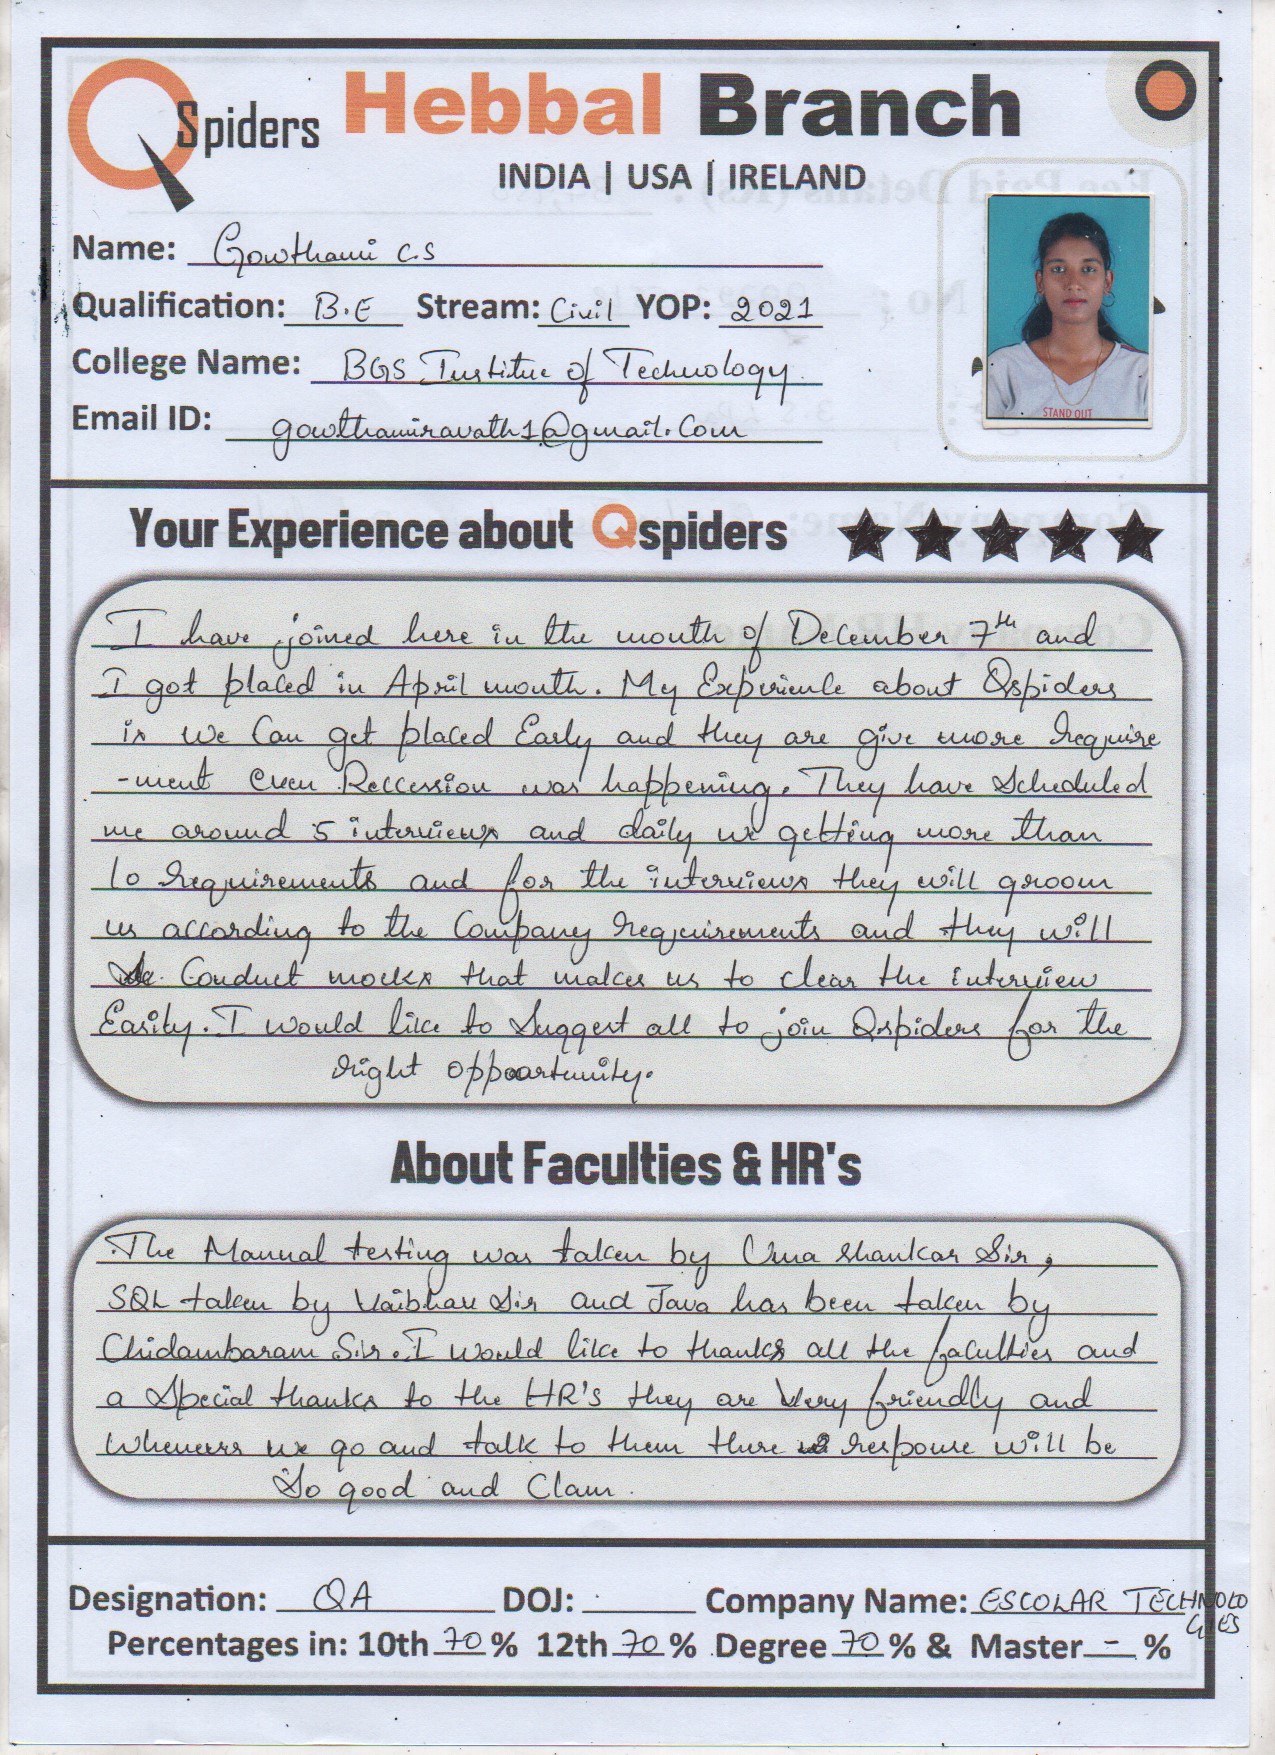 Qspiders Hebbal Branch
INDIA | USA | IRELAND
Name: Gowthami C.S
Qualification: B.E Stream: Civil YOP: 2021
College Name: BGS Institue of Technology
Email ID: gowthamiravath1@gmail.com
STAND OUT
Your Experience about Qspiders
I have joined here in the month of December 7th and
I got placed in April month. My Experience about Qspiders
is we Can get placed Early and they are give more require
-ment even Reccession was happening. They have Scheduled
me around 5 interviews and daily we getting more than
10 requirements and for the interviews they will groom
us according to the Company requirements and they will
Conduct mocks that makes us to clear the interview
Easily. I would like to Suggest all to join Qspiders for the
right oppoartunity.
About Faculties & HR's
The Manual testing was taken by Uma shankar Sir,
SQL taken by Vaibhav Sir and Java has been taken by
Chidambaram Sir. I would like to thanks all the faculties and
a Special thanks to the HR's they are Very friendly and
Wheneverr we go and talk to them there response will be
So good and Clam.
Designation: QA DOJ: Company Name: ESCOLAR TECHNOLO
GIES
Percentages in: 10th 70 % 12th 70 % Degree 70 % & Master - %